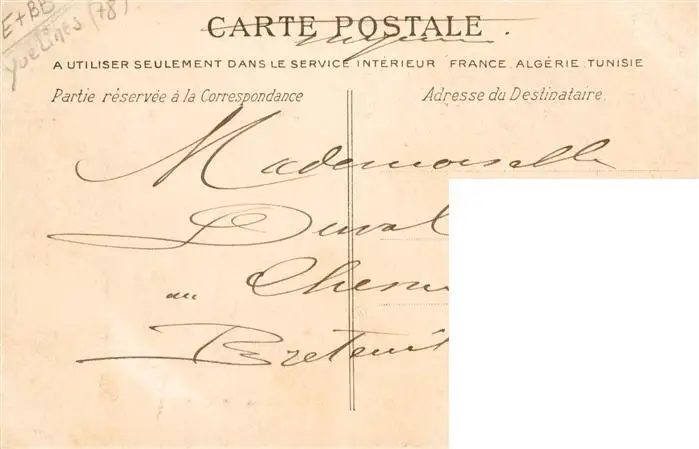 E+BB
Yvelines (78)
CARTE POSTALE
A UTILISER SEULEMENT DANS LE SERVICE INTÉRIEUR FRANCE. ALGÉRIE. TUNISIE
Partie réservée à la Correspondance
Adresse du Destinataire.
Mademoiselle
Duval
au Chesn
Breteuil